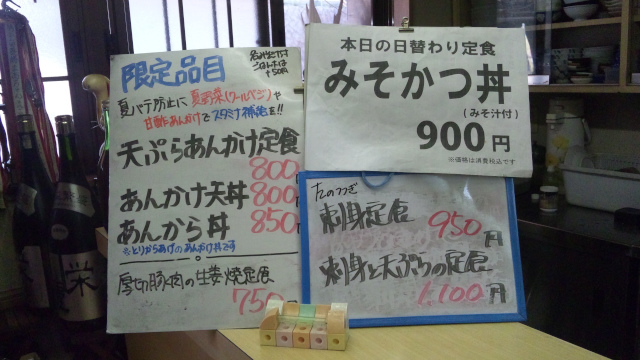 限定品目
夏バテ防止に夏野菜(クールベジ)や
甘酢あんかけでスタミナ補給を!!
天ぷらあんかけ定食
800
あんかけ天丼 800
あんから丼 850
※とりからあげのあんかけ丼です
厚切豚肉の生姜焼定食
750
本日の日替わり定食
みそかつ丼
(みそ汁付)
900円
※価格は消費税込です
刺身定食 950円
刺身と天ぷらの定食
1,100円
栄